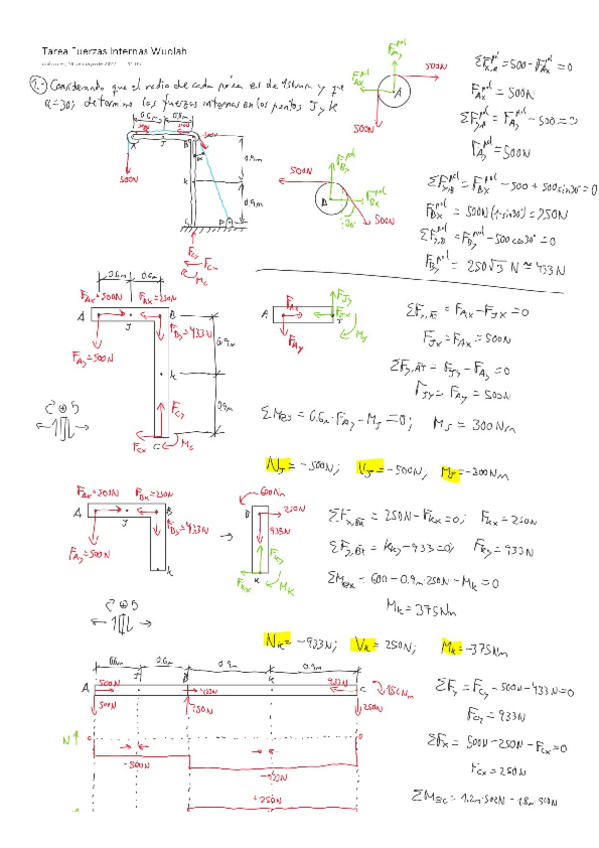 Tarea Fuerzas Internas Wuolah
1.- Considerando que el radio de cada polea es de 150mm y que
α=30°, determine las fuerzas internas en los puntos J y K
0.6m 0.6m
500N
A J B
500N
0.9m
K
0.9m
C D
F_Cy
F_Cx
M_C
F_Ay^pol
F_Ax^pol
500N
A
500N
ΣF_x,A^pol = 500 - F_Ax^pol = 0
F_Ax^pol = 500N
ΣF_y,A^pol = F_Ay^pol - 500 = 0
F_Ay^pol = 500N
F_By^pol
500N
F_Bx^pol
B
30°
500N
ΣF_x,B^pol = F_Bx^pol - 500 + 500 sin30° = 0
F_Bx^pol = 500N(1-sin30°) = 250N
ΣF_y,B^pol = F_By^pol - 500 cos30° = 0
F_By^pol = 250√3 N ≈ 433N
0.6m 0.6m
F_Ax=500N F_Bx=250N
A J B
F_By=433N
F_Ay=500N
0.9m
K
0.9m
F_Cy
F_Cx C M_C
A F_Ax F_Jy F_Jx J
F_Ay M_J
ΣF_x,AJ = F_Ax - F_Jx = 0
F_Jx = F_Ax = 500N
ΣF_y,AJ = F_Jy - F_Ay = 0
F_Jy = F_Ay = 500N
ΣM@J = 0.6m · F_Ay - M_J = 0; M_J = 300Nm
N_J = -500N; V_J = -500N, M_J = -300Nm
F_Ax=500N F_Bx=250N
A J B
F_By=433N
F_Ay=500N
K
600Nm
B 250N
933N
F_Ky
F_Kx K M_K
ΣF_x,BK = 250N - F_Kx = 0; F_Kx = 250N
ΣF_y,BK = F_Ky - 933 = 0; F_Ky = 933N
ΣM@K = 600 - 0.9m·250N - M_K = 0
M_K = 375Nm
N_K = -933N; V_K = 250N; M_K = -375Nm
0.6m 0.6m 0.9m 0.9m
A J B K C
500N 433N 933N 150Nm
500N 250N 250N
N
-500N
-933N
+250N
ΣF_y = F_Cy - 500N - 433N = 0
F_Cy = 933N
ΣF_x = 500N - 250N - F_Cx = 0
F_Cx = 250N